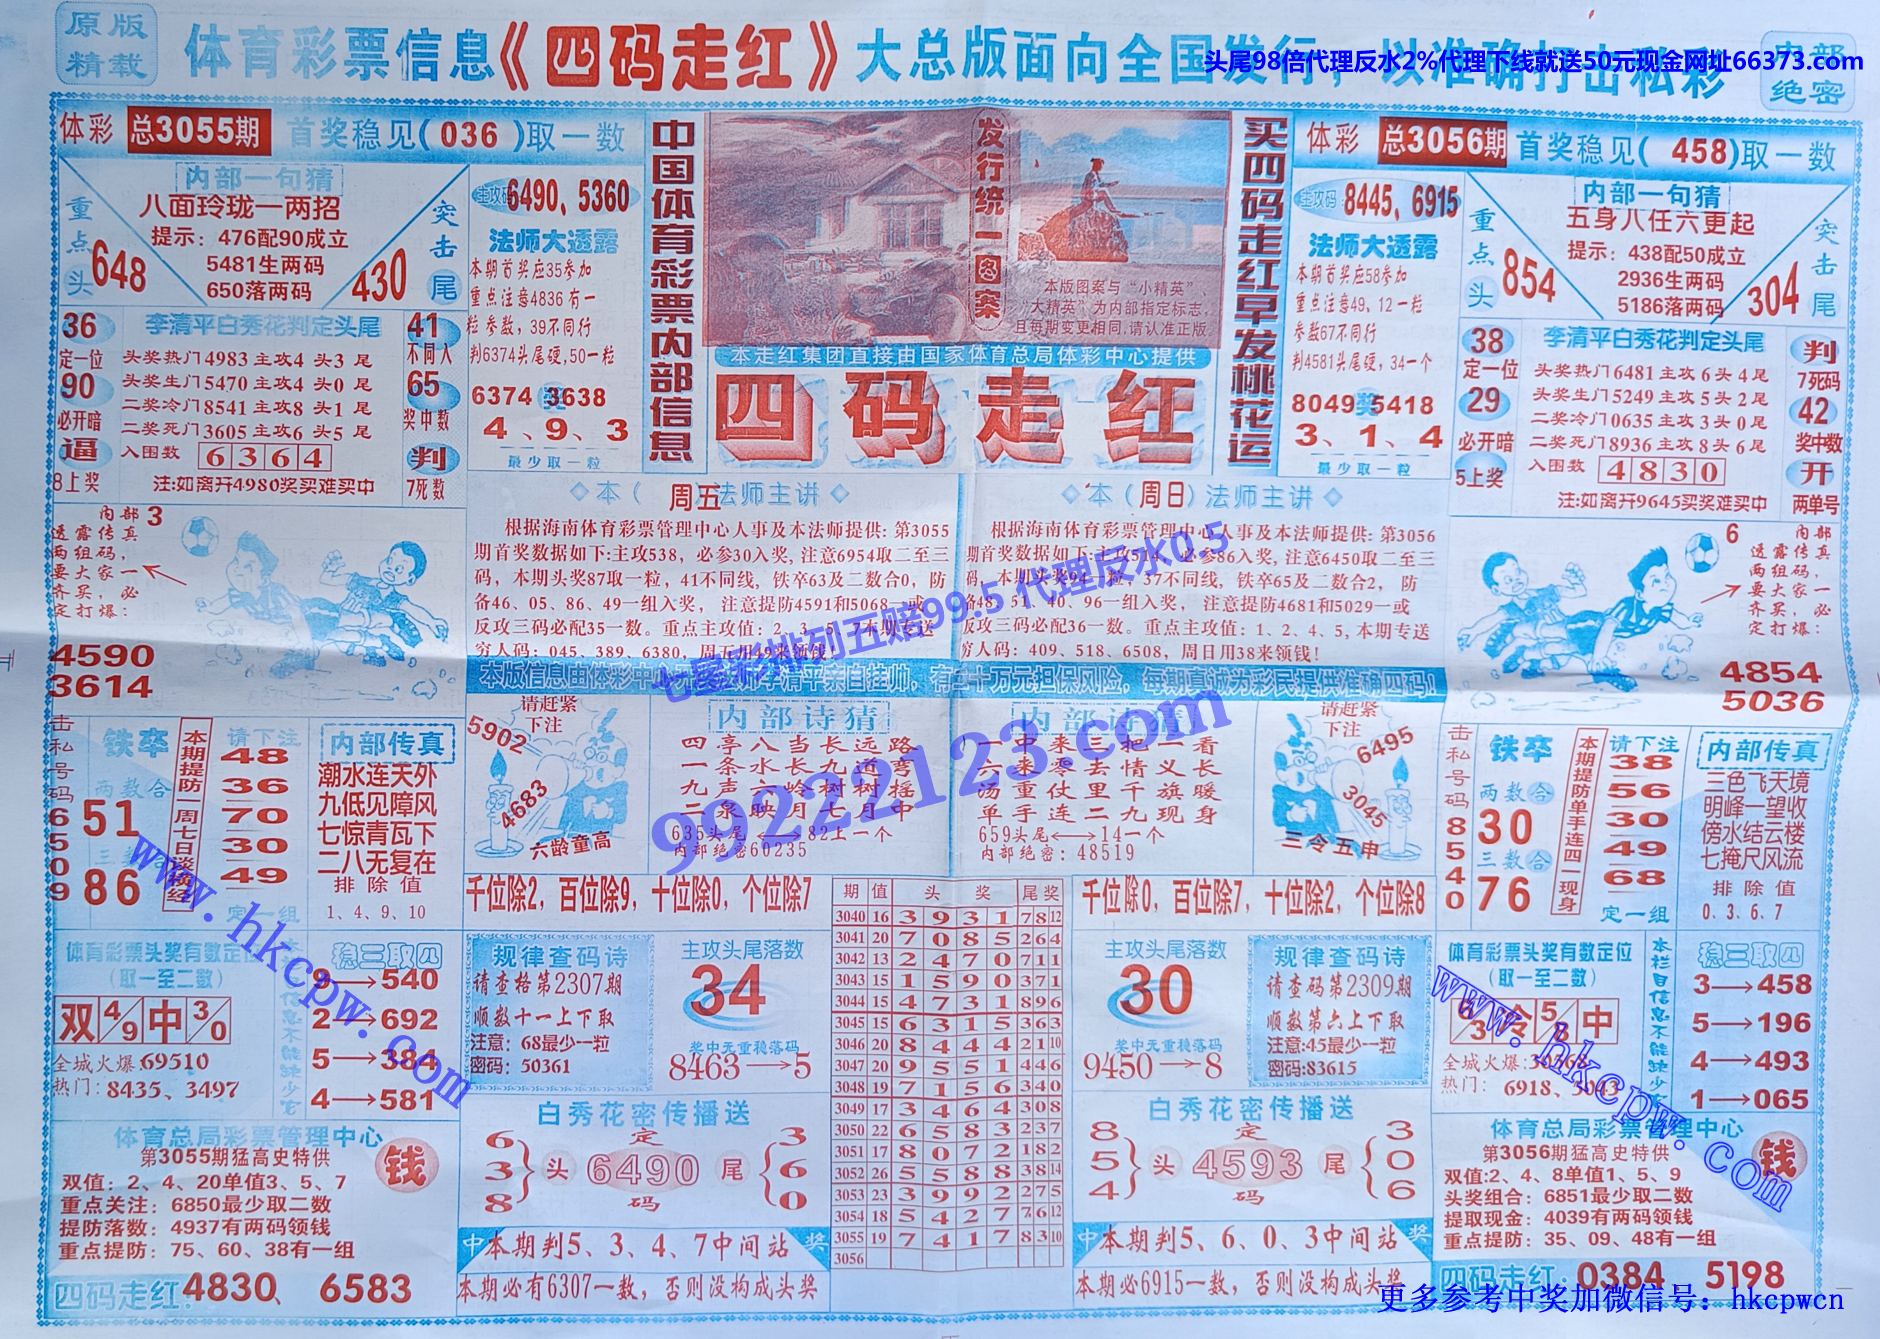 原版
精载
体育彩票信息《四码走红》大总版面向全国发行，以准确打击私彩
内部
绝密
头尾98倍代理反水2%代理下线就送50元现金网址66373.com
体彩 总3055期 首奖稳见(036)取一数
内部一句猜
八面玲珑一两招
提示：476配90成立
5481生两码
650落两码
重点头
648
430
突击尾
主攻码
6490、5360
法师大透露
本期首奖应35参加
重点注意4836有一
粒参数，39不同行
判6374头尾硬,50一粒
6374 奖 3638
4、9、3
最少取一粒
36
定一位
90
必开暗
逼
8上奖
李清平白秀花判定头尾
头奖热门4983主攻4头3尾
头奖生门5470主攻4头0尾
二奖冷门8541主攻8头1尾
二奖死门3605主攻6头5尾
入围数 6364
注:如离开4980奖买难买中
41
不同人
65
奖中数
判
7死数
中国体育彩票内部信息
发行统一图案
本版图案与“小精英”、
“大精英”为内部指定标志,
且每期变更相同,请认准正版
本走红集团直接由国家体育总局体彩中心提供
四码走红
买四码走红早发桃花运
体彩 总3056期 首奖稳见(458)取一数
主攻码
8445、6915
法师大透露
本期首奖应58参加
重点注意49、12一粒
参数67不同行
判4581头尾硬,34一个
8049 奖 5418
3、1、4
最少取一粒
内部一句猜
五身八任六更起
提示：438配50成立
2936生两码
5186落两码
重点头
854
304
突击尾
38
定一位
29
必开暗
5上奖
李清平白秀花判定头尾
头奖热门6481主攻6头4尾
头奖生门5249主攻5头2尾
二奖冷门0635主攻3头0尾
二奖死门8936主攻8头6尾
入围数 4830
注:如离开9645买奖难买中
判
7死码
42
奖中数
开
两单号
内部 3
透露传真
两组码，
要大家一
齐买，必
定打爆：
4590
3614
◇本（周五）法师主讲◇
根据海南体育彩票管理中心人事及本法师提供: 第3055
期首奖数据如下:主攻538, 必参30入奖, 注意6954取二至三
码, 本期头奖87取一粒, 41不同线, 铁卒63及二数合0, 防
备46、05、86、49一组入奖, 注意提防4591和5068一或
反攻三码必配35一数。重点主攻值: 2、3、5、7本期专送
穷人码: 045、389、6380, 周五用49来领钱!
◇本（周日）法师主讲◇
根据海南体育彩票管理中心人事及本法师提供: 第3056
期首奖数据如下:主攻514, 必参86入奖, 注意6450取二至三
码, 本期头奖94一粒, 37不同线, 铁卒65及二数合2, 防
备48、51、40、96一组入奖, 注意提防4681和5029一或
反攻三码必配36一数。重点主攻值: 1、2、4、5,本期专送
穷人码: 409、518、6508, 周日用38来领钱!
本版信息由体彩中心元老法师李清平亲自挂帅，有三十万元担保风险，每期真诚为彩民提供准确四码!
七星彩排列五赔99.5 代理反水0.5
99222123.com
6 内部
透露传真
两组码，
要大家一
齐买，必
定打爆：
4854
5036
击私号码6509
铁卒
两数合
51
三数合
86
本期提防一周七日谈横经
请下注
48
36
70
30
49
定一组
内部传真
潮水连天外
九低见障风
七惊青瓦下
二八无复在
排除值
1、4、9、10
请赶紧
下注
5902
4683
六龄童高
内部诗猜
四亭八当长远路
一条水长九道弯
九声六龄树树摇
二泉映月七月中
635头尾⟷82上一个
内部绝密60235
内部诗猜
一中来三把一看
六来零去情义长
汤重仗里千旗暖
单手连二九现身
659头尾⟷14一个
内部绝密：48519
请赶紧
下注
6495
3045
三令五申
击私号码8540
铁卒
两数合
30
三数合
76
本期提防单手连四一现身
请下注
38
56
30
49
68
定一组
内部传真
三色飞天境
明峰一望收
傍水结云楼
七掩尺风流
排除值
0、3、6、7
千位除2，百位除9，十位除0，个位除7
千位除0，百位除7，十位除2，个位除8
期 值 头奖 尾奖
3040 16 3931 7812
3041 20 7085 264
3042 13 2470 711
3043 15 1590 371
3044 15 4731 896
3045 15 6315 363
3046 20 8444 2110
3047 20 9551 446
3048 19 7156 340
3049 17 3464 308
3050 22 6583 237
3051 17 8072 182
3052 26 5588 3814
3053 23 3992 275
3054 18 5427 7612
3055 19 7417 8310
3056
体育彩票头奖有数定位
(取一至二数)
双 4/9 中 3/0
全城火爆:69510
热门: 8435、3497
稳三取四
9→540
2→692
5→384
4→581
规律查码诗
请查格第2307期
顺数十一上下取
注意：68最少一粒
密码：50361
主攻头尾落数
34
奖中无重稳落码
8463→5
主攻头尾落数
30
奖中无重稳落码
9450→8
规律查码诗
请查码第2309期
顺数第六上下取
注意:45最少一粒
密码:83615
体育彩票头奖有数定位
(取一至二数)
6/3 冷 5/8 中
全城火爆:
热门: 6918、5043
本栏目信息不能缺少它
稳三取四
3→458
5→196
4→493
1→065
体育总局彩票管理中心
第3055期猛高史特供
钱
双值：2、4、20单值3、5、7
重点关注：6850最少取二数
提防落数：4937有两码领钱
重点提防：75、60、38有一组
四码走红: 4830、6583
白秀花密传播送
638 头 定 6490 码 尾 360
中 本期判5、3、4、7中间站 奖
本期必有6307一数，否则没构成头奖
白秀花密传播送
854 头 定 4593 码 尾 306
中 本期判5、6、0、3中间站 奖
本期必6915一数，否则没构成头奖
体育总局彩票管理中心
第3056期猛高史特供
钱
双值:2、4、8单值1、5、9
头奖组合：6851最少取二数
提取现金：4039有两码领钱
重点提防：35、09、48有一组
四码走红: 0384 5198
www.hkcpw.com
www.hkcpw.com
更多参考中奖加微信号：hkcpwcn